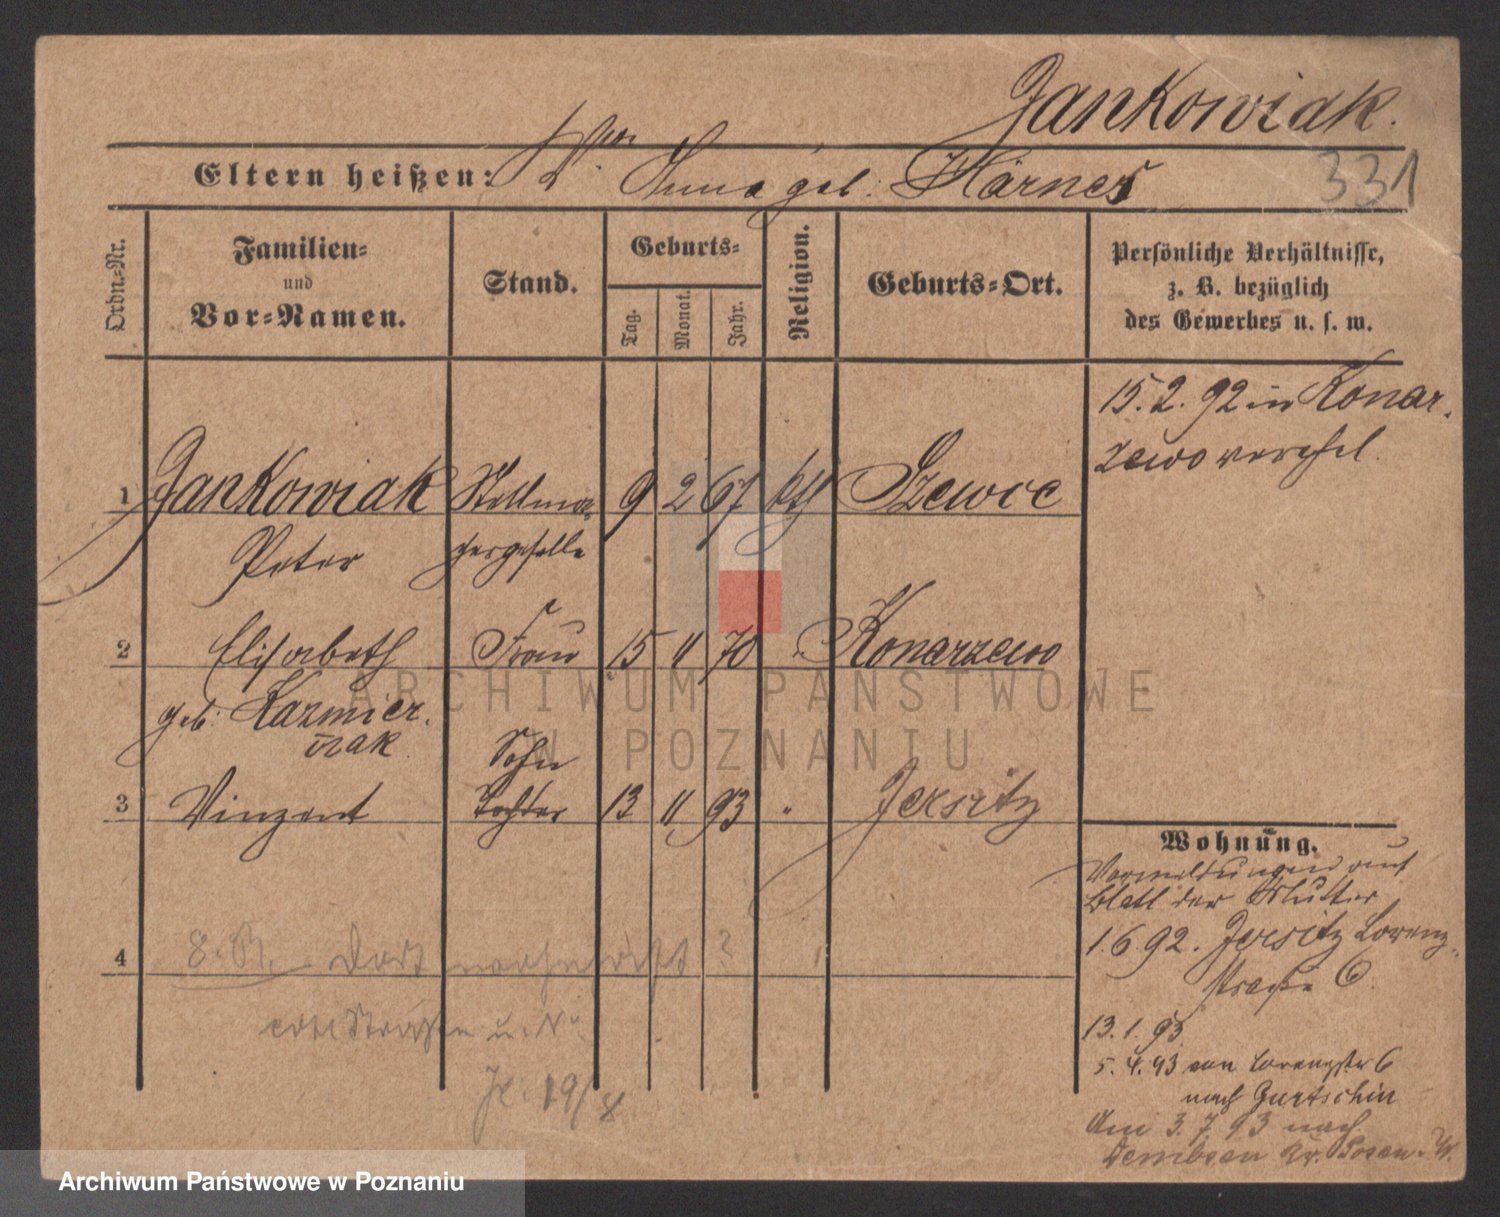 Jankowiak.
331
Eltern heißen: Anna geb. Härnes
Ordn.-Nr.
Familien-
und
Vor-Namen.
Stand.
Geburts-
Tag.
Monat.
Jahr.
Religion.
Geburts-Ort.
Persönliche Verhältnisse,
z. B. bezüglich
des Gewerbes u. s. w.
15. 2. 92 in Konar-
zewo verehel.
1 Jankowiak Stellma- 9 2 67 kth Szewce
Peter chergeselle
2 Elisabeth Frau 15 11 70 " Konarzewo
geb. Kazmier-
czak
Sohn
3 Vinzent Tochter 13 11 93 " Jersitz
Wohnung.
Vormeldungen auf
Blatt der Mutter
1. 6. 92. Jersitz Lorenz-
straße 6
4 dort ?
Straße u. No
13. 1. 93
5. 4. 93 von Lorenzstr 6
nach Gurtschin
19/8
Am 3. 7. 93 nach
Dembsen Kr. Posen W.
ARCHIWUM PAŃSTWOWE
W POZNANIU
Archiwum Państwowe w Poznaniu